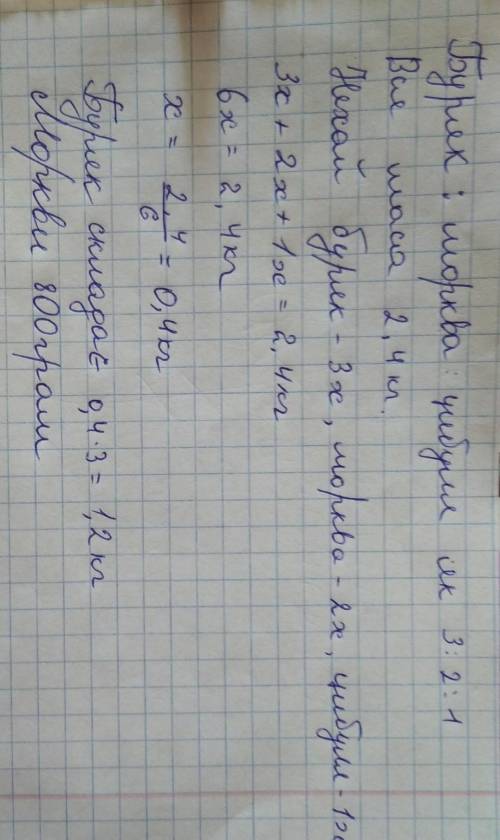 Буряк : морква : цибуля як 3 : 2 : 1
Вся маса 2,4 кг.
Нехай буряк - 3x, морква - 2x, цибуля - 1x
3x + 2x + 1x = 2,4 кг
6x = 2,4 кг
x = 2,4/6 = 0,4 кг
Буряк складає 0,4 · 3 = 1,2 кг
Моркви 800 грам